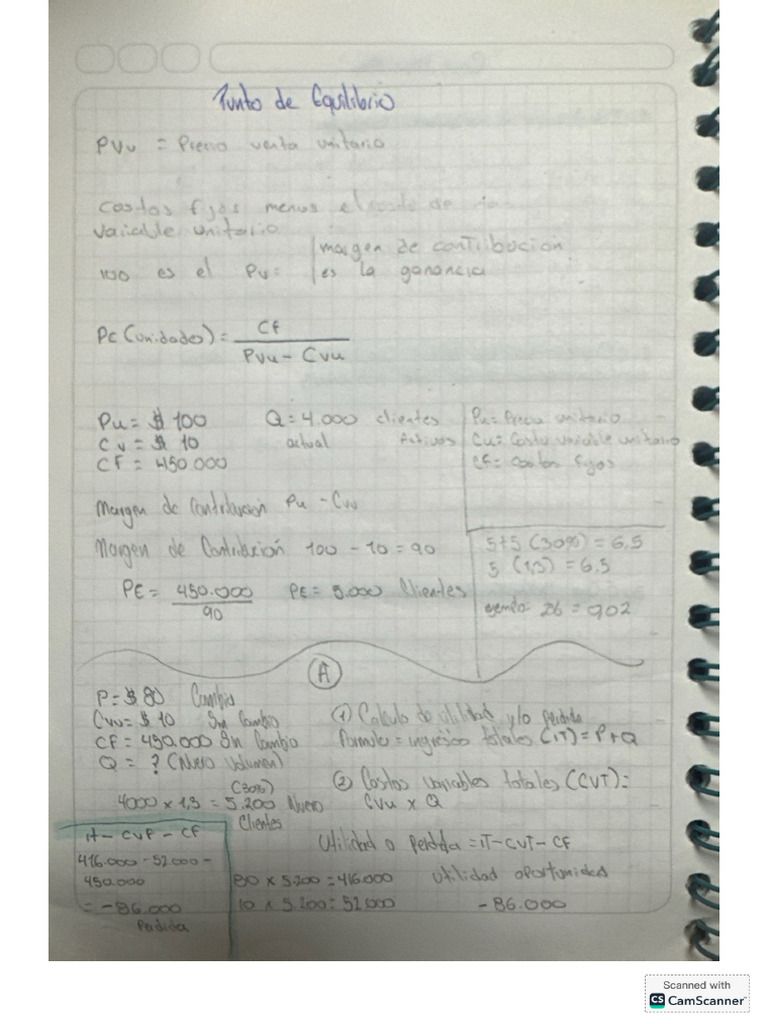 Punto de Equilibrio
PVu = Precio venta unitario
Costos fijos menos el costo de
variable unitario
100 es el Pv =
margen de contribución
es la ganancia
PC (unidades) = CF
PVu - Cvu
Pu = $ 100
Cv = $ 10
CF = 450.000
Q = 4.000 clientes
actual Activos
Pu = Precio unitario
Cu = Costo variable unitario
CF = costos fijos
Margen de Contribución Pu - Cvu
Margen de Contribución 100 - 10 = 90
PE = 450.000
90
PE = 5.000 Clientes
5+5 (30%) = 6.5
5 (1,3) = 6.5
ejemplo: 26 = 902
A
P = $ 80 Cambio
Cvu = $ 10 Sin Cambio
CF = 450.000 Sin Cambio
Q = ? (Nuevo Volumen)
(30%)
4000 x 1,3 = 5.200 Nuevo
Clientes
① Calculo de utilidad y/o perdida
Formula = ingresos totales (IT) = P+Q
② Costos variables totales (CVT) =
CVu x Q
Utilidad o perdida = IT - CVT - CF
80 x 5.200 = 416.000
10 x 5.200 = 52.000
utilidad oportunidad
- 86.000
IT - CVP - CF
416.000 - 52.000 -
450.000
= - 86.000
Perdida
Scanned with
CS CamScanner